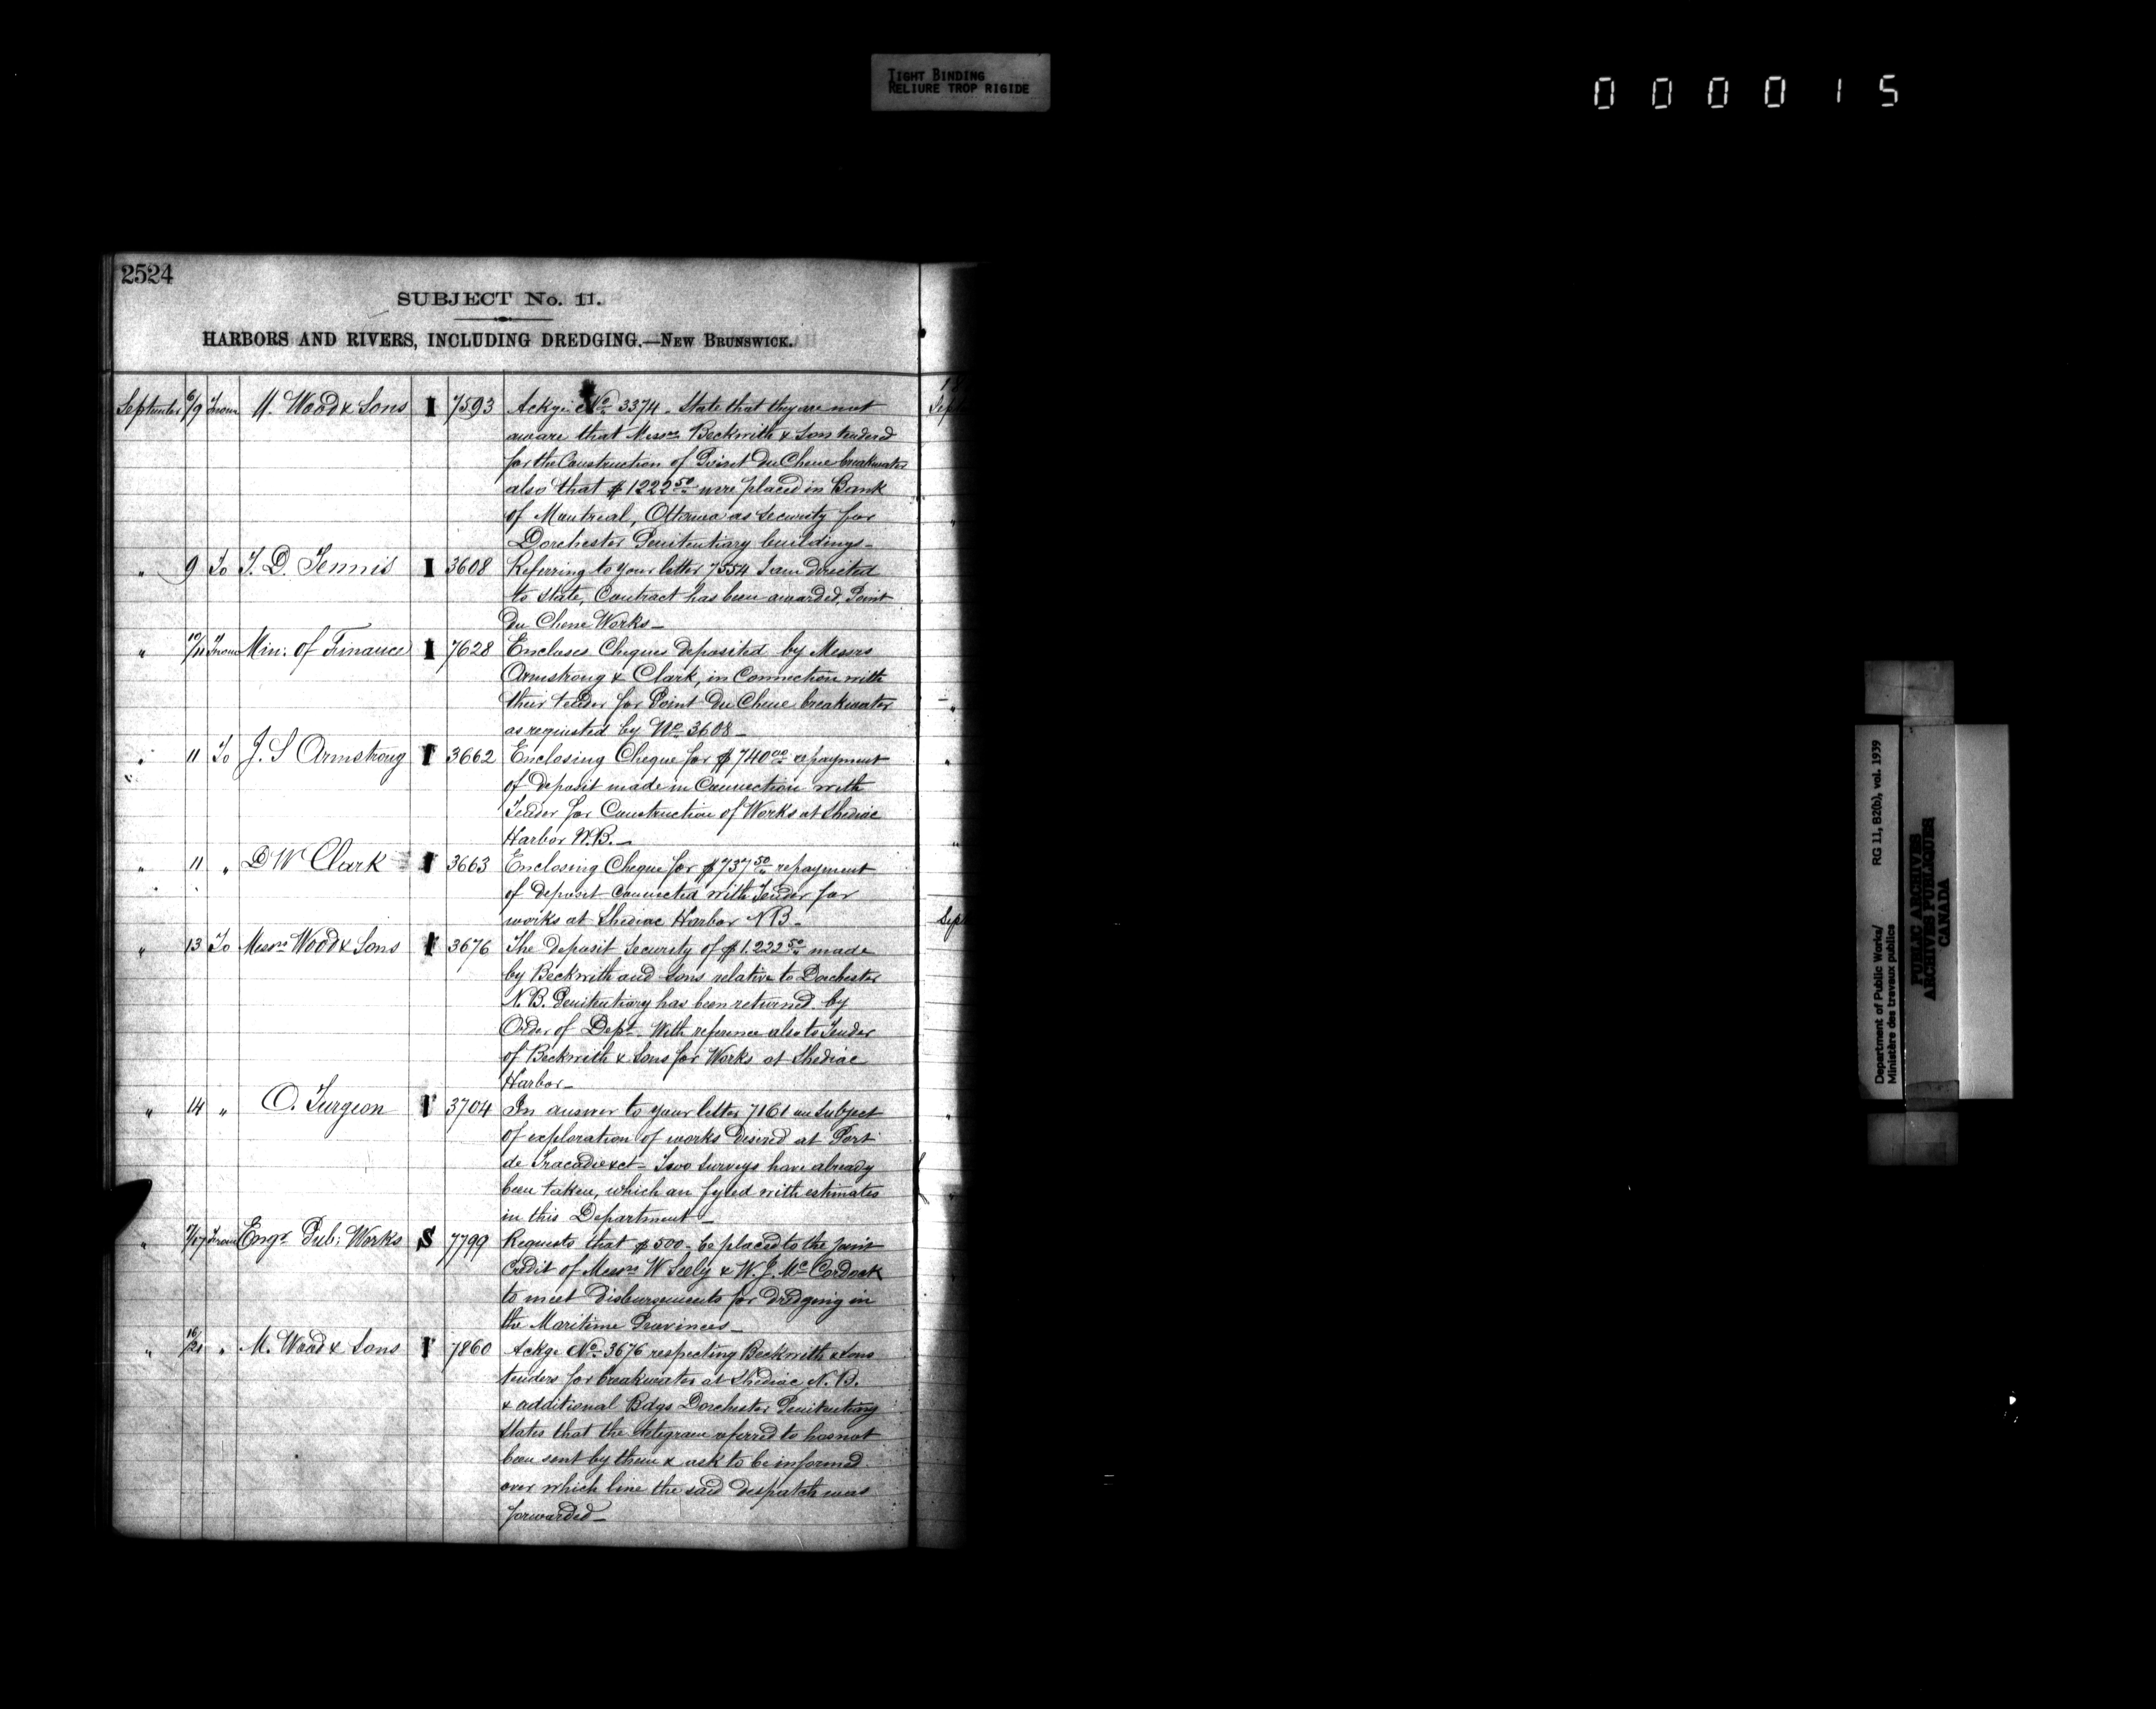 TIGHT BINDING
RELIURE TROP RIGIDE
000015
2524
SUBJECT No. 11.
HARBORS AND RIVERS, INCLUDING DREDGING.—NEW BRUNSWICK.
September 6/9 From M. Wood & Sons I 7593 Ackge No 3374. State that they are not
aware that Messrs Beckwith & Son tendered
for the Construction of Point Du Chene breakwater
also that $1222 50 were placed in Bank
of Montreal, Ottawa as security for
Dorchester Penitentiary buildings_
" 9 To T. D. Tennis I 3608 Referring to your letter 7554 I am directed
to state, Contract has been awarded, Point
Du Chene Works_
" 10/11 From Min: of Finance I 7628 Encloses Cheques deposited by Messrs
Armstrong & Clark, in Connection with
their tender for Point Du Chene breakwater
as requested by No 3608_
" 11 To J. S Armstrong I 3662 Enclosing Cheque for $740 00 repayment
of deposit made in Connection with
Tender for Construction of Works at Shediac
Harbor N.B._
" 11 " D W Clark I 3663 Enclosing Cheque for $737 50 repayment
of deposit connected with Tender for
works at Shediac Harbor N B_
" 13 To Messrs Wood & Sons I 3676 The deposit security of $1.222 50 made
by Beckwith and Sons relative to Dorchester
N. B. Penitentiary has been returned by
Order of Dept. With reference also to Tender
of Beckwith & Sons for Works at Shediac
Harbor_
" 14 " O. Turgeon I 3704 In answer to your letter 7161 on subject
of exploration of works desired at Port
de Tracadie &ct_ Two surveys have already
been taken, which are fyled with estimates
in this Department_
" /17 From Engr Pub: Works S 7799 Requests that $500_ be placed to the joint
Credit of Messrs W Seely & W. J. Mc Cordock
to meet disbursements for dredging in
the Maritime Provinces_
" 16/21 " M. Wood & Sons I 7860 Ackge No 3676 respecting Beckwith & Sons
tenders for breakwater at Shediac N. B.
& additional Bdgs Dorchester Penitentiary
States that the telegram referred to has not
been sent by them & ask to be informed
over which line the said despatch was
forwarded_
Sept
Department of Public Works/
Ministère des travaux publics
RG 11, B2(b), vol. 1939
PUBLIC ARCHIVES
ARCHIVES PUBLIQUES
CANADA